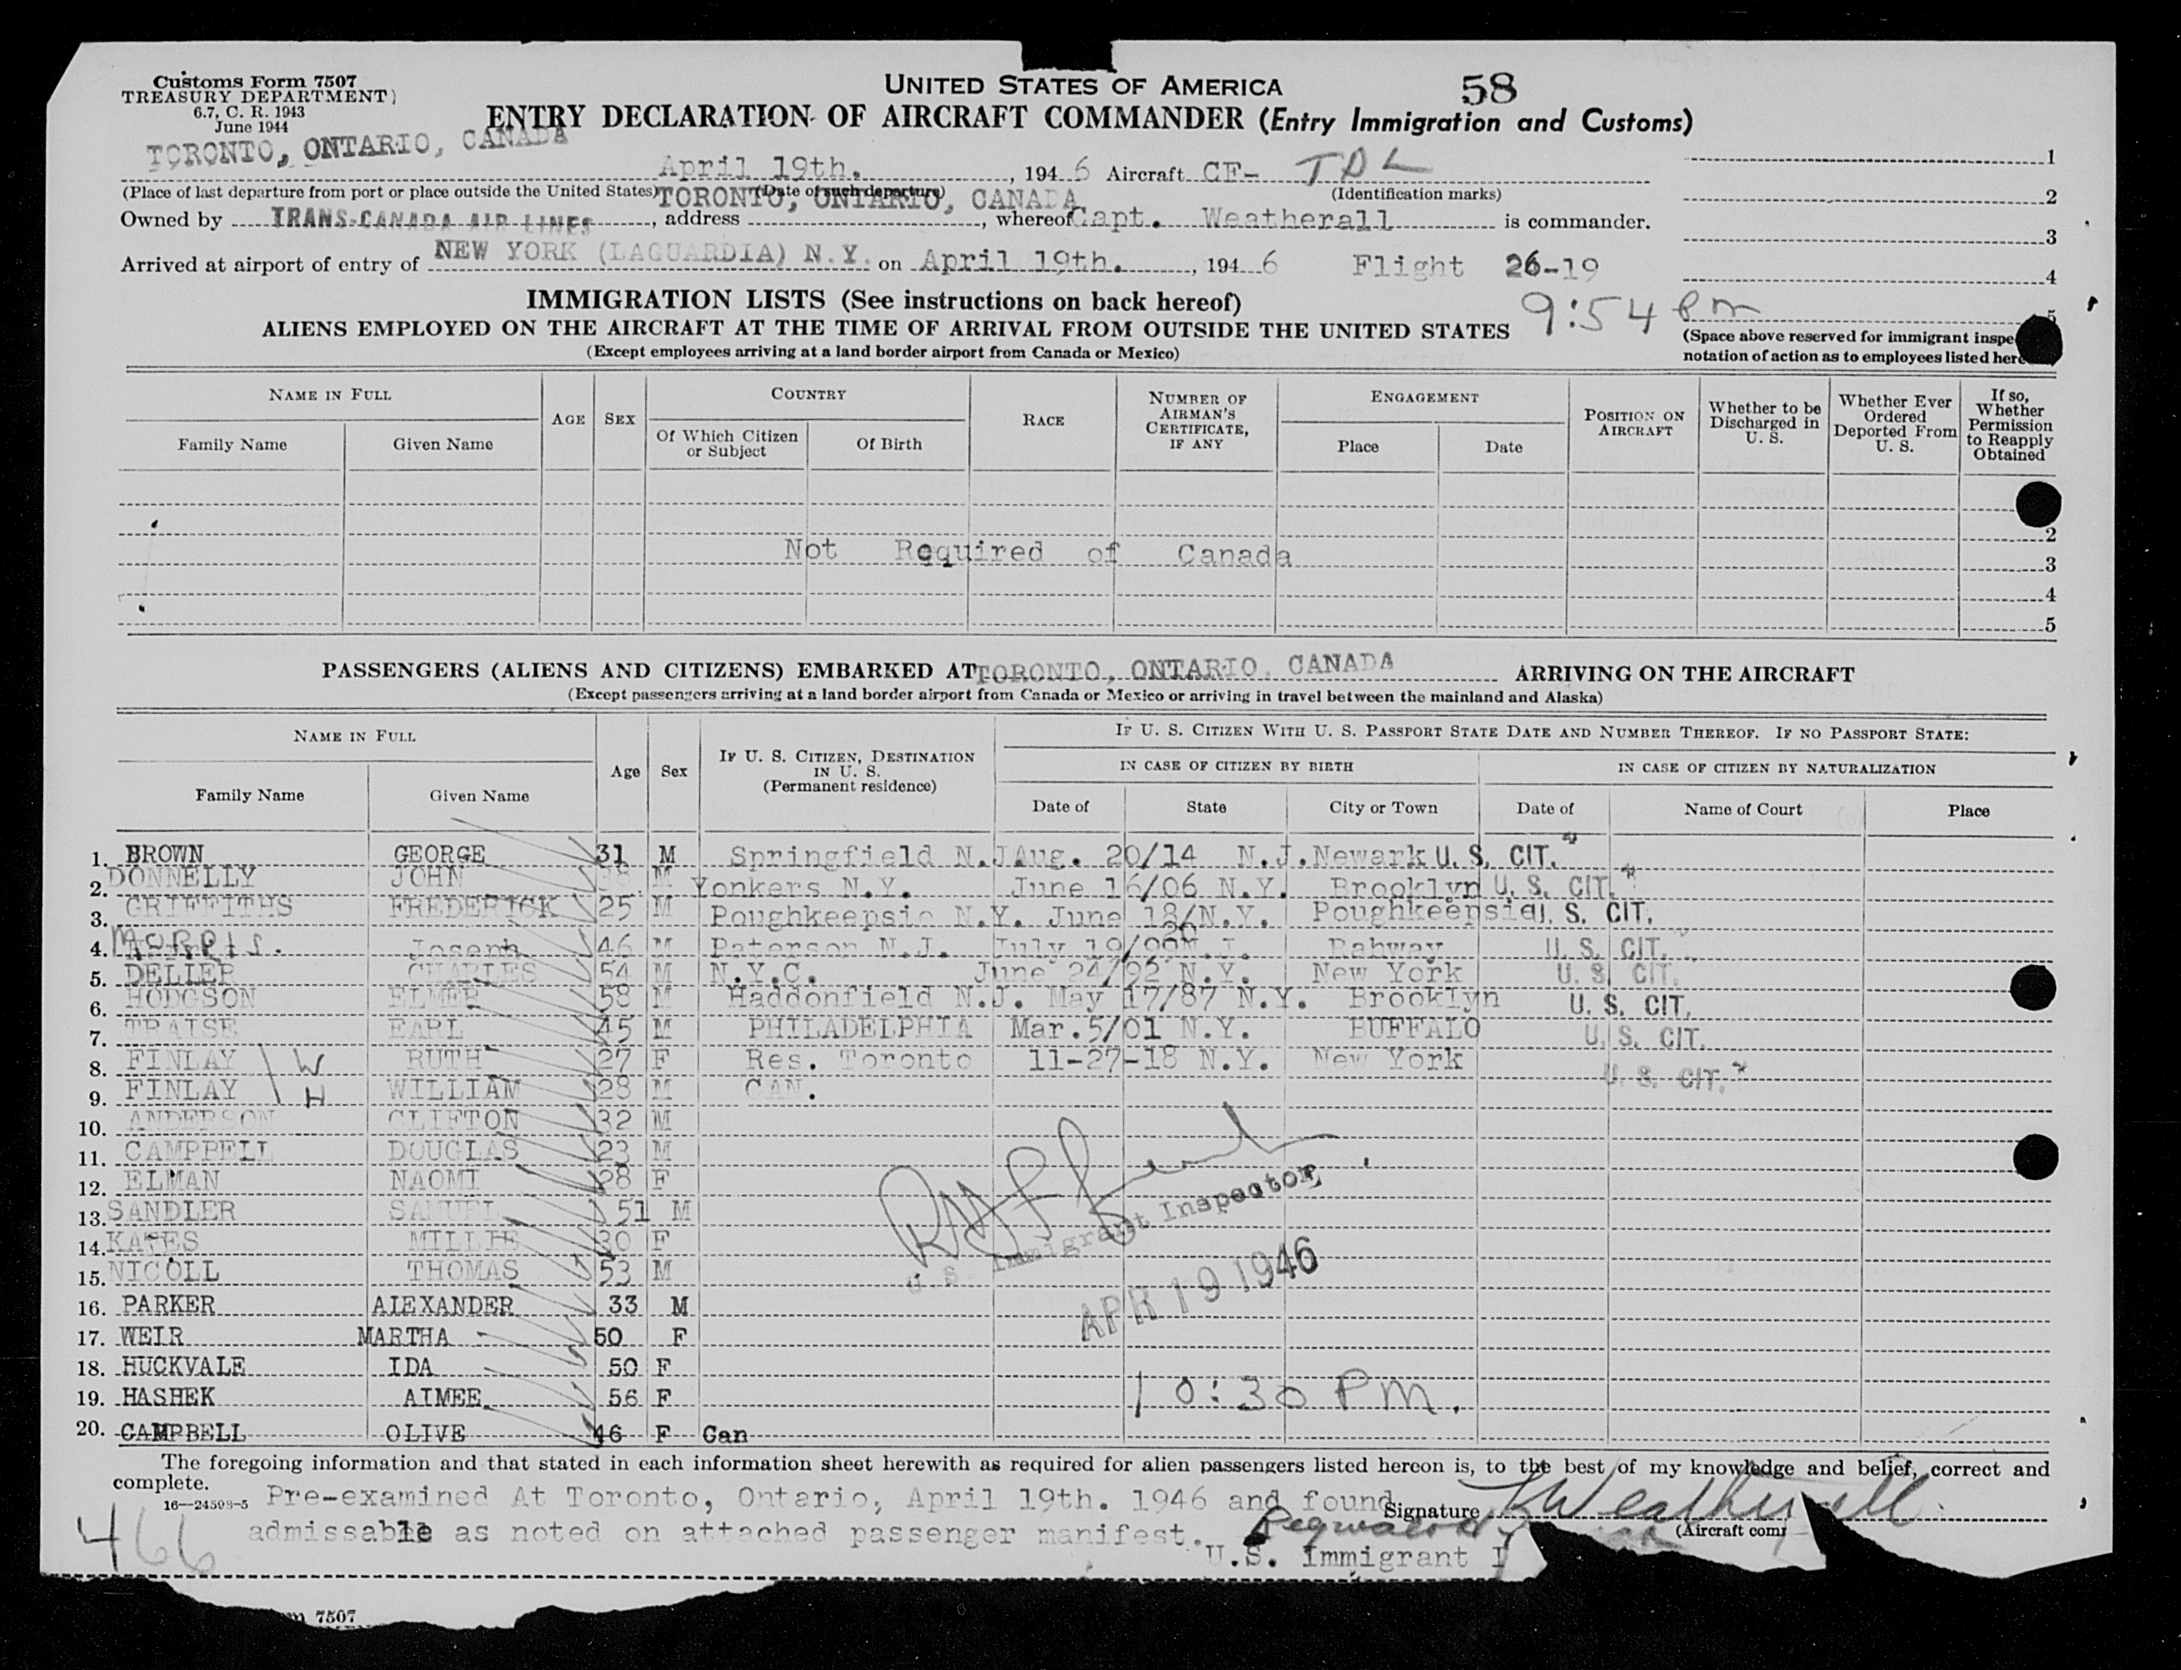 Customs Form 7507
TREASURY DEPARTMENT
6.7, C. R. 1943
June 1944
UNITED STATES OF AMERICA
58
ENTRY DECLARATION OF AIRCRAFT COMMANDER (Entry Immigration and Customs)
TORONTO, ONTARIO, CANADA April 19th. , 194 6 Aircraft CF- TDL 1
(Place of last departure from port or place outside the United States) (Date of such departure) (Identification marks)
TORONTO, ONTARIO, CANADA 2
Owned by TRANS-CANADA AIR LINES , address , whereof Capt. Weatherall is commander.
3
Arrived at airport of entry of NEW YORK (LAGUARDIA) N.Y. on April 19th. , 194 6 Flight 26-19
4
IMMIGRATION LISTS (See instructions on back hereof) 9:54 PM 5
ALIENS EMPLOYED ON THE AIRCRAFT AT THE TIME OF ARRIVAL FROM OUTSIDE THE UNITED STATES
(Space above reserved for immigrant inspe
(Except employees arriving at a land border airport from Canada or Mexico)
notation of action as to employees listed here
NAME IN FULL AGE SEX COUNTRY RACE NUMBER OF AIRMAN'S CERTIFICATE, IF ANY ENGAGEMENT POSITION ON AIRCRAFT Whether to be Discharged in U. S. Whether Ever Ordered Deported From U. S. If so, Whether Permission to Reapply Obtained
Family Name Given Name Of Which Citizen or Subject Of Birth Place Date
2
Not Required of Canada
3
4
5
PASSENGERS (ALIENS AND CITIZENS) EMBARKED AT TORONTO, ONTARIO, CANADA ARRIVING ON THE AIRCRAFT
(Except passengers arriving at a land border airport from Canada or Mexico or arriving in travel between the mainland and Alaska)
NAME IN FULL Age Sex IF U. S. CITIZEN, DESTINATION IN U. S. (Permanent residence) IF U. S. CITIZEN WITH U. S. PASSPORT STATE DATE AND NUMBER THEREOF. IF NO PASSPORT STATE:
IN CASE OF CITIZEN BY BIRTH IN CASE OF CITIZEN BY NATURALIZATION
Family Name Given Name Date of State City or Town Date of Name of Court Place
1. BROWN GEORGE 31 M Springfield N.J. Aug. 20/14 N.J. Newark U. S. CIT.
2. DONNELLY JOHN M Yonkers N.Y. June 16/06 N.Y. Brooklyn U. S. CIT.
3. GRIFFITHS FREDERICK 25 M Poughkeepsie N.Y. June 18/20 N.Y. Poughkeepsie U. S. CIT.
4. Morris. Joseph 46 M Paterson N.J. July 19/99 N.J. Rahway U. S. CIT.
5. DELLER CHARLES 54 M N.Y.C. June 24/92 N.Y. New York U. S. CIT.
6. HODGSON ELMER 58 M Haddonfield N.J. May 17/87 N.Y. Brooklyn U. S. CIT.
7. TRAISE EARL 45 M PHILADELPHIA Mar. 5/01 N.Y. BUFFALO U. S. CIT.
8. FINLAY W RUTH 27 F Res. Toronto 11-27-18 N.Y. New York U. S. CIT.
9. FINLAY H WILLIAM 28 M CAN.
10. ANDERSON CLIFTON 32 M
11. CAMPBELL DOUGLAS 23 M
12. ELMAN NAOMI 28 F
13. SANDLER SAMUEL 51 M
14. KATES MILLIE 30 F
15. NICOLL THOMAS 53 M
16. PARKER ALEXANDER 33 M
17. WEIR MARTHA 50 F
18. HUCKVALE IDA 50 F
19. HASHEK AIMEE 56 F
20. CAMPBELL OLIVE 46 F Can
U. S. Immigrant Inspector
APR 19 1946
10:30 PM.
The foregoing information and that stated in each information sheet herewith as required for alien passengers listed hereon is, to the best of my knowledge and belief, correct and
complete.
16—24593-5 Pre-examined At Toronto, Ontario, April 19th. 1946 and found Signature Weatherall
466 admissable as noted on attached passenger manifest. (Aircraft comm
U.S. Immigrant I
7507